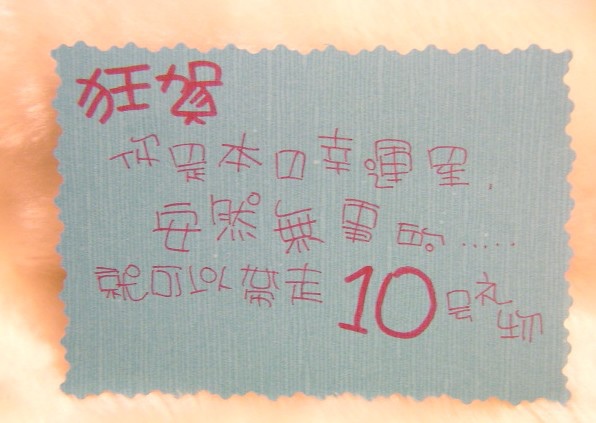 狂賀
你是本日幸運星.
安然無事的.....
就可以帶走10号礼物